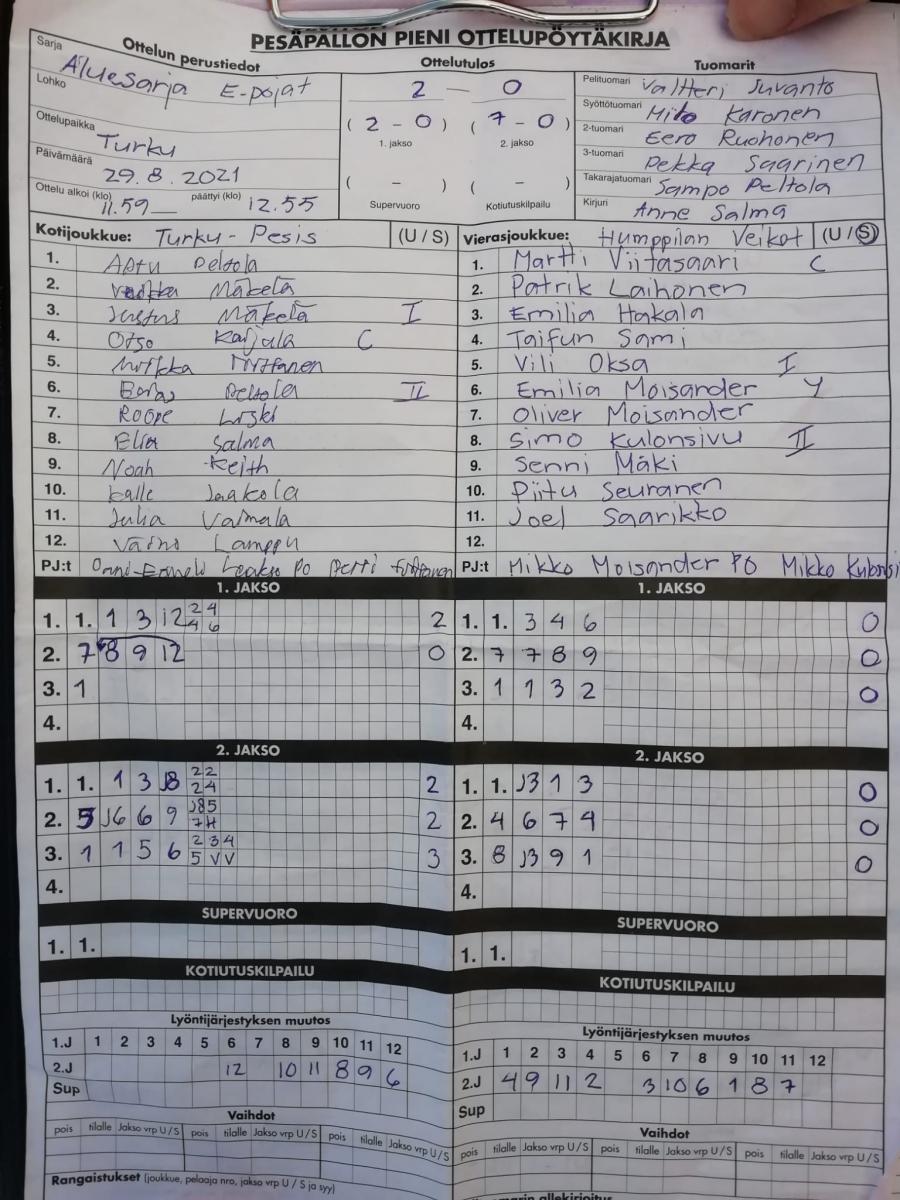 PESÄPALLON PIENI OTTELUPÖYTÄKIRJA
Sarja Ottelun perustiedot
Aluesarja E-pojat
Lohko
Ottelupaikka
Turku
Päivämäärä
29.8.2021
Ottelu alkoi (klo) 11.59 päättyi (klo) 12.55
Ottelutulos
2 — 0
( 2 - 0 ) ( 7 - 0 )
1. jakso 2. jakso
( - ) ( - )
Supervuoro Kotiutuskilpailu
Tuomarit
Pelituomari Valtteri Juvanto
Syöttötuomari Karonen
2-tuomari Eero Ruohonen
3-tuomari Pekka Saarinen
Takarajatuomari Sampo Peltola
Kirjuri Anne Salma
Kotijoukkue: Turku-Pesis (U / S)
1. Peltola
2. Mäkelä
3. Justus Mäkelä I
4. Otso Karjala C
5.
6. Peltola II
7. Roope
8. Elia Salma
9. Noah Keith
10. Kalle Jaakola
11. Julia Vaimala
12. Väinö Lamppu
PJ:t PO Pertti
Vierasjoukkue: Humppilan Veikot (U / S)
1. Martti Viitasaari C
2. Patrik Laihonen
3. Emilia Hakala
4. Taifun Sami
5. Vili Oksa I
6. Emilia Moisander Y
7. Oliver Moisander
8. Simo Kulonsivu II
9. Senni Mäki
10. Piitu Seuranen
11. Joel Saarikko
12.
PJ:t Mikko Moisander PO Mikko Kulonsi
1. JAKSO
1. 1. 1 3 12 2 4 4 6 2
2. 7 8 9 12 0
3. 1
4.
1. JAKSO
1. 1. 3 4 6 0
2. 7 7 8 9 0
3. 1 1 3 2 0
4.
2. JAKSO
1. 1. 1 3 J8 2 2 2 4 2
2. 5 J6 6 9 J8 5 7 H 2
3. 1 1 5 6 2 3 4 5 V V 3
4.
2. JAKSO
1. 1. J3 1 3 0
2. 4 6 7 4 0
3. 8 J3 9 1 0
4.
SUPERVUORO
1. 1.
SUPERVUORO
1. 1.
KOTIUTUSKILPAILU
KOTIUTUSKILPAILU
Lyöntijärjestyksen muutos
1.J 1 2 3 4 5 6 7 8 9 10 11 12
2.J 12 10 11 8 9 6
Sup
Lyöntijärjestyksen muutos
1.J 1 2 3 4 5 6 7 8 9 10 11 12
2.J 4 9 11 2 3 10 6 1 8 7
Sup
Vaihdot
pois tilalle Jakso vrp U / S pois tilalle Jakso vrp U / S pois tilalle Jakso vrp U / S
Vaihdot
pois tilalle Jakso vrp U / S pois tilalle Jakso vrp U / S pois tilalle Jakso vrp U / S
Rangaistukset (joukkue, pelaaja nro, jakso vrp U / S ja syy)
allekirjoitus